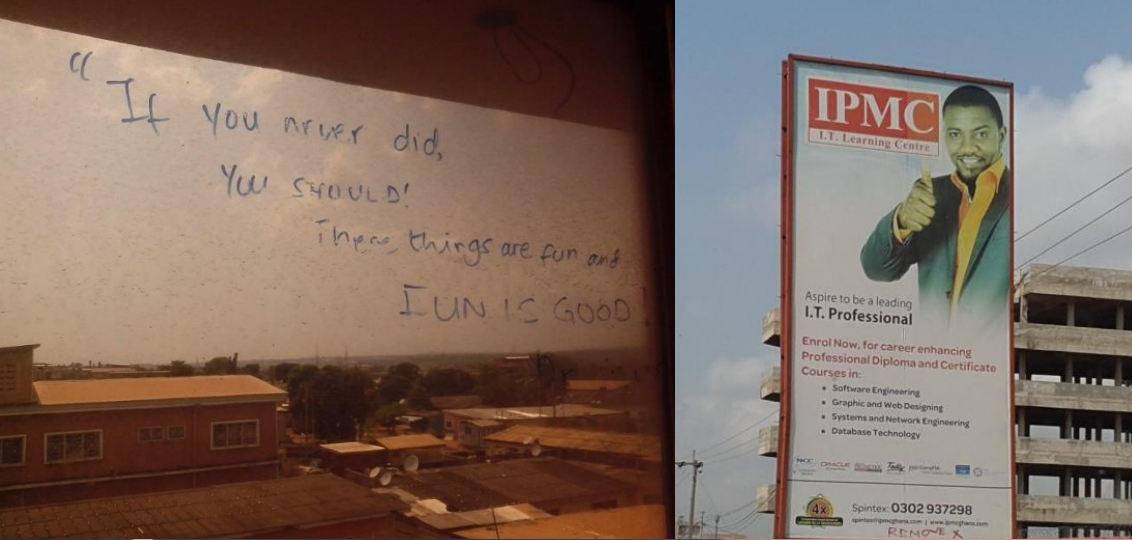 "If you never did,
You SHOULD!
These things are fun and
FUN IS GOOD!
IPMC
I.T. Learning Centre
Aspire to be a leading
I.T. Professional
Enrol Now, for career enhancing
Professional Diploma and Certificate
Courses in:
Software Engineering
Graphic and Web Designing
Systems and Network Engineering
Database Technology
NCC ORACLE Tally CompTIA
4x
Spintex: 0302 937298
spintex@ipmcghana.com | www.ipmcghana.com
REMOVE X